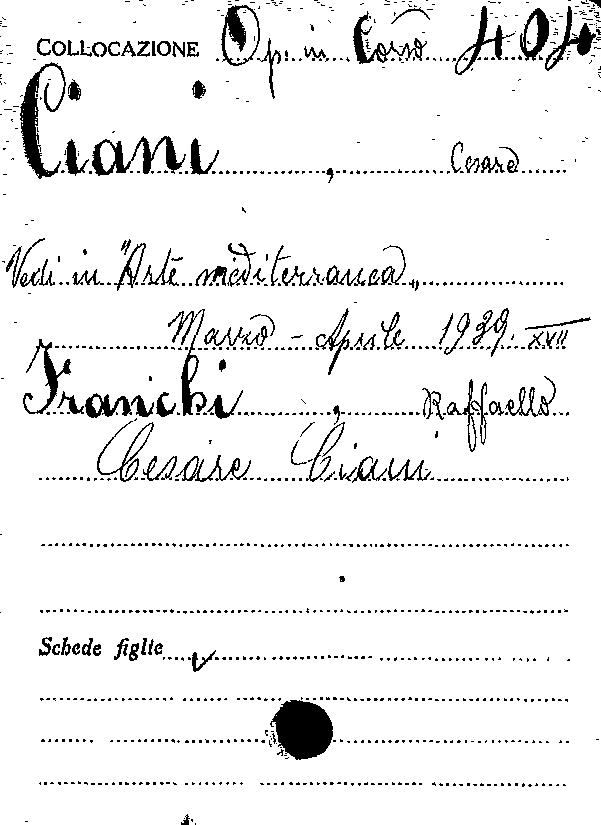 COLLOCAZIONE Op. in Corso 404
Ciani, Cesare
Vedi in "Arte mediterranea„
Marzo - Aprile 1939. XVII
Franchi, Raffaello
Cesare Ciani
Schede figlie